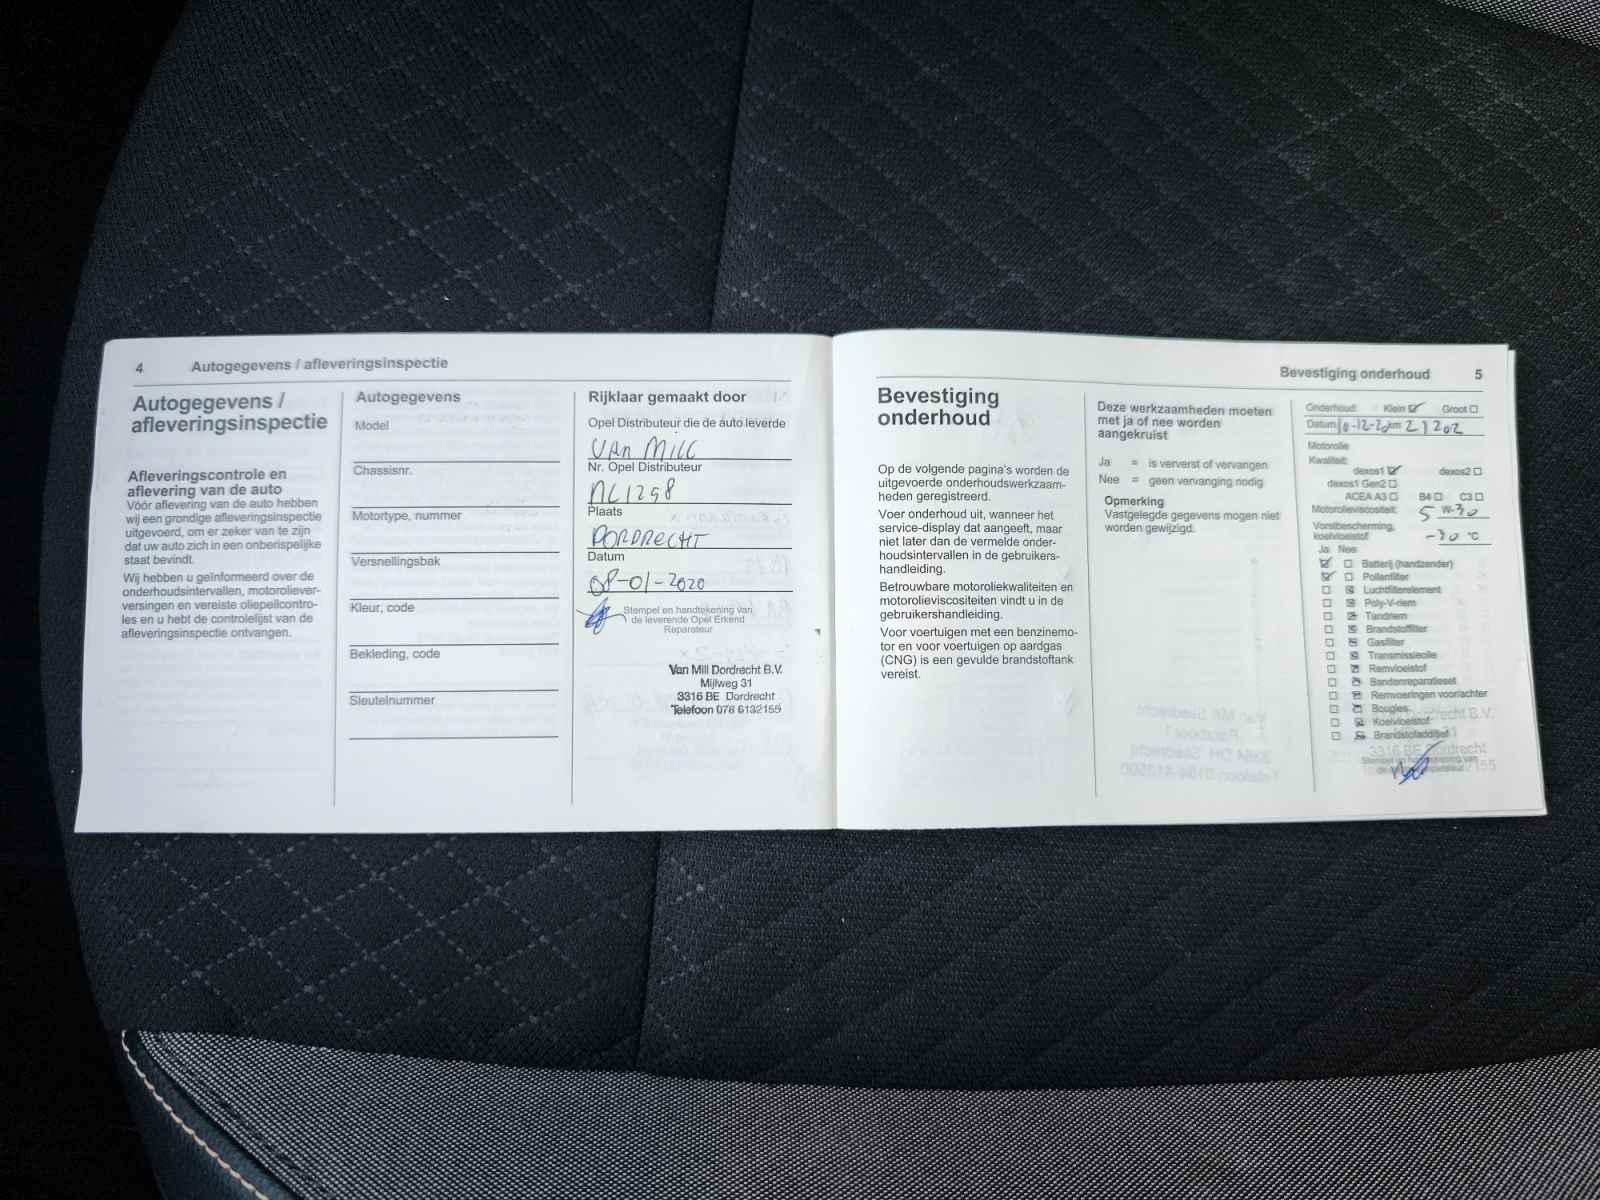 4 Autogegevens / afleveringsinspectie
Autogegevens /
afleveringsinspectie
Afleveringscontrole en
aflevering van de auto
Vóór aflevering van de auto hebben
wij een grondige afleveringsinspectie
uitgevoerd, om er zeker van te zijn
dat uw auto zich in een onberispelijke
staat bevindt.
Wij hebben u geïnformeerd over de
onderhoudsintervallen, motoroliever-
versingen en vereiste oliepeilcontro-
les en u hebt de controlelijst van de
afleveringsinspectie ontvangen.
Autogegevens
Model
Chassisnr.
Motortype, nummer
Versnellingsbak
Kleur, code
Bekleding, code
Sleutelnummer
Rijklaar gemaakt door
Opel Distributeur die de auto leverde
VAN MILL
Nr. Opel Distributeur
NL1298
Plaats
DORDRECHT
Datum
08-01-2020
Stempel en handtekening van
de leverende Opel Erkend
Reparateur
Van Mill Dordrecht B.V.
Mijlweg 31
3316 BE Dordrecht
Telefoon 078 6132155
Bevestiging onderhoud 5
Bevestiging
onderhoud
Op de volgende pagina's worden de
uitgevoerde onderhoudswerkzaam-
heden geregistreerd.
Voer onderhoud uit, wanneer het
service-display dat aangeeft, maar
niet later dan de vermelde onder-
houdsintervallen in de gebruikers-
handleiding.
Betrouwbare motoroliekwaliteiten en
motorolieviscositeiten vindt u in de
gebruikershandleiding.
Voor voertuigen met een benzinemo-
tor en voor voertuigen op aardgas
(CNG) is een gevulde brandstoftank
vereist.
Deze werkzaamheden moeten
met ja of nee worden
aangekruist
Ja = is ververst of vervangen
Nee = geen vervanging nodig
Opmerking
Vastgelegde gegevens mogen niet
worden gewijzigd.
Onderhoud: Klein Groot
Datum 10-12-20 km 21202
Motorolie
Kwaliteit:
dexos1 dexos2
dexos1 Gen2
ACEA A3 B4 C3
Motorolieviscositeit: 5 W-30
Vorstbescherming,
koelvloeistof -30 °C
Ja Nee
Batterij (handzender)
Pollenfilter
Luchtfilterelement
Poly-V-riem
Tandriem
Brandstoffilter
Gasfilter
Transmissieolie
Remvloeistof
Bandenreparatieset
Remvoeringen voor/achter
Bougies
Koelvloeistof
Brandstofadditief
3316 BE Dordrecht
Stempel en handtekening van